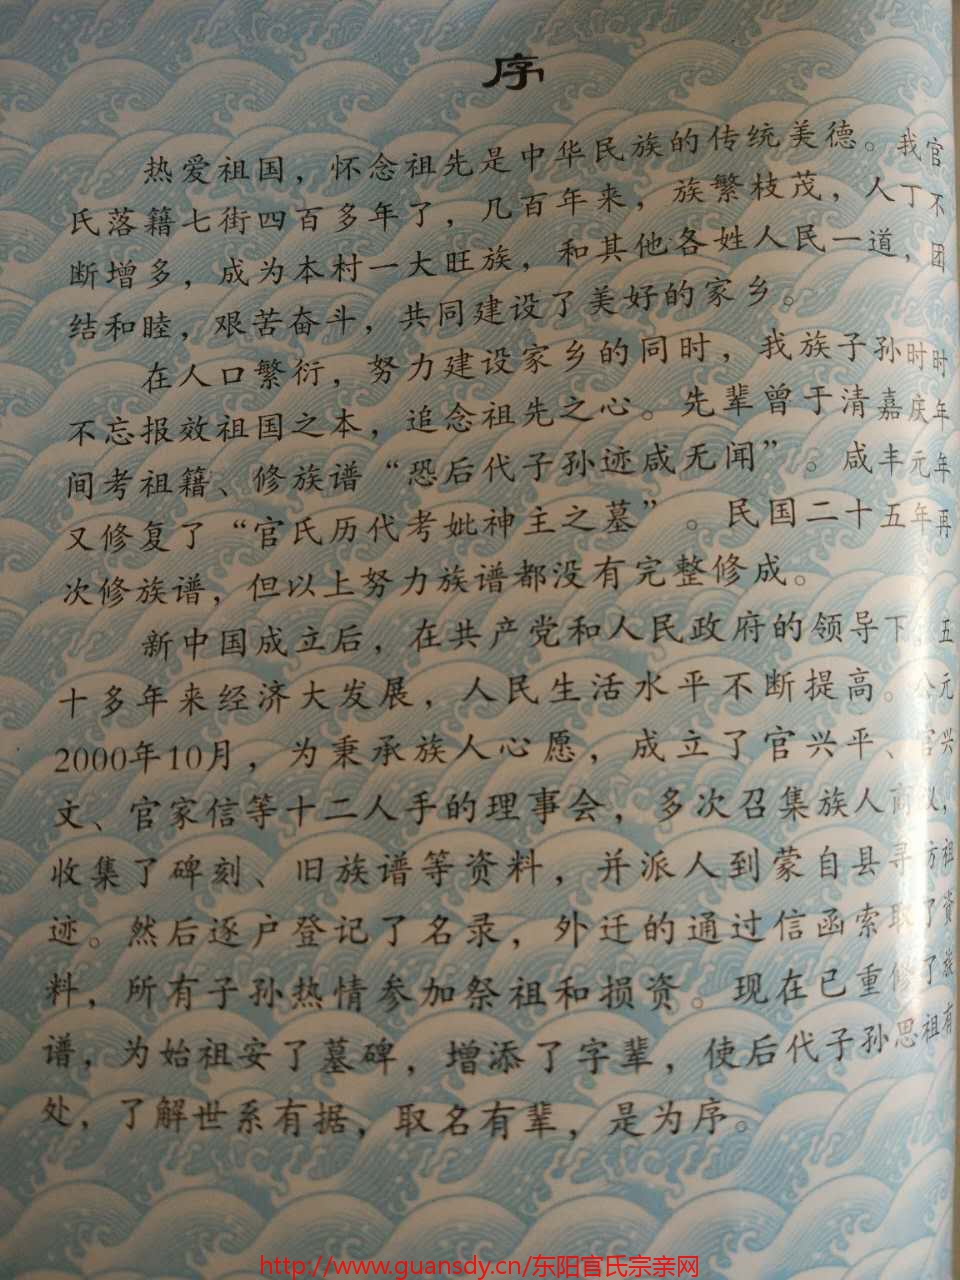 序
热爱祖国，怀念祖先是中华民族的传统美德。我官
氏落籍七街四百多年了，几百年来，族繁枝茂，人丁不
断增多，成为本村一大旺族，和其他各姓人民一道，团
结和睦，艰苦奋斗，共同建设了美好的家乡。
在人口繁衍，努力建设家乡的同时，我族子孙时时
不忘报效祖国之本，追念祖先之心。先辈曾于清嘉庆年
间考祖籍、修族谱“恐后代子孙迹咸无闻”。咸丰元年
又修复了“官氏历代考妣神主之墓”。民国二十五年再
次修族谱，但以上努力族谱都没有完整修成。
新中国成立后，在共产党和人民政府的领导下，五
十多年来经济大发展，人民生活水平不断提高。公元
2000年10月，为秉承族人心愿，成立了官兴平、官兴
文、官家信等十二人手的理事会，多次召集族人商议，
收集了碑刻、旧族谱等资料，并派人到蒙自县寻访祖
迹。然后逐户登记了名录，外迁的通过信函索取了资
料，所有子孙热情参加祭祖和损资。现在已重修了族
谱，为始祖安了墓碑，增添了字辈，使后代子孙思祖有
处，了解世系有据，取名有辈，是为序。
http://www.guansdy.cn/东阳官氏宗亲网